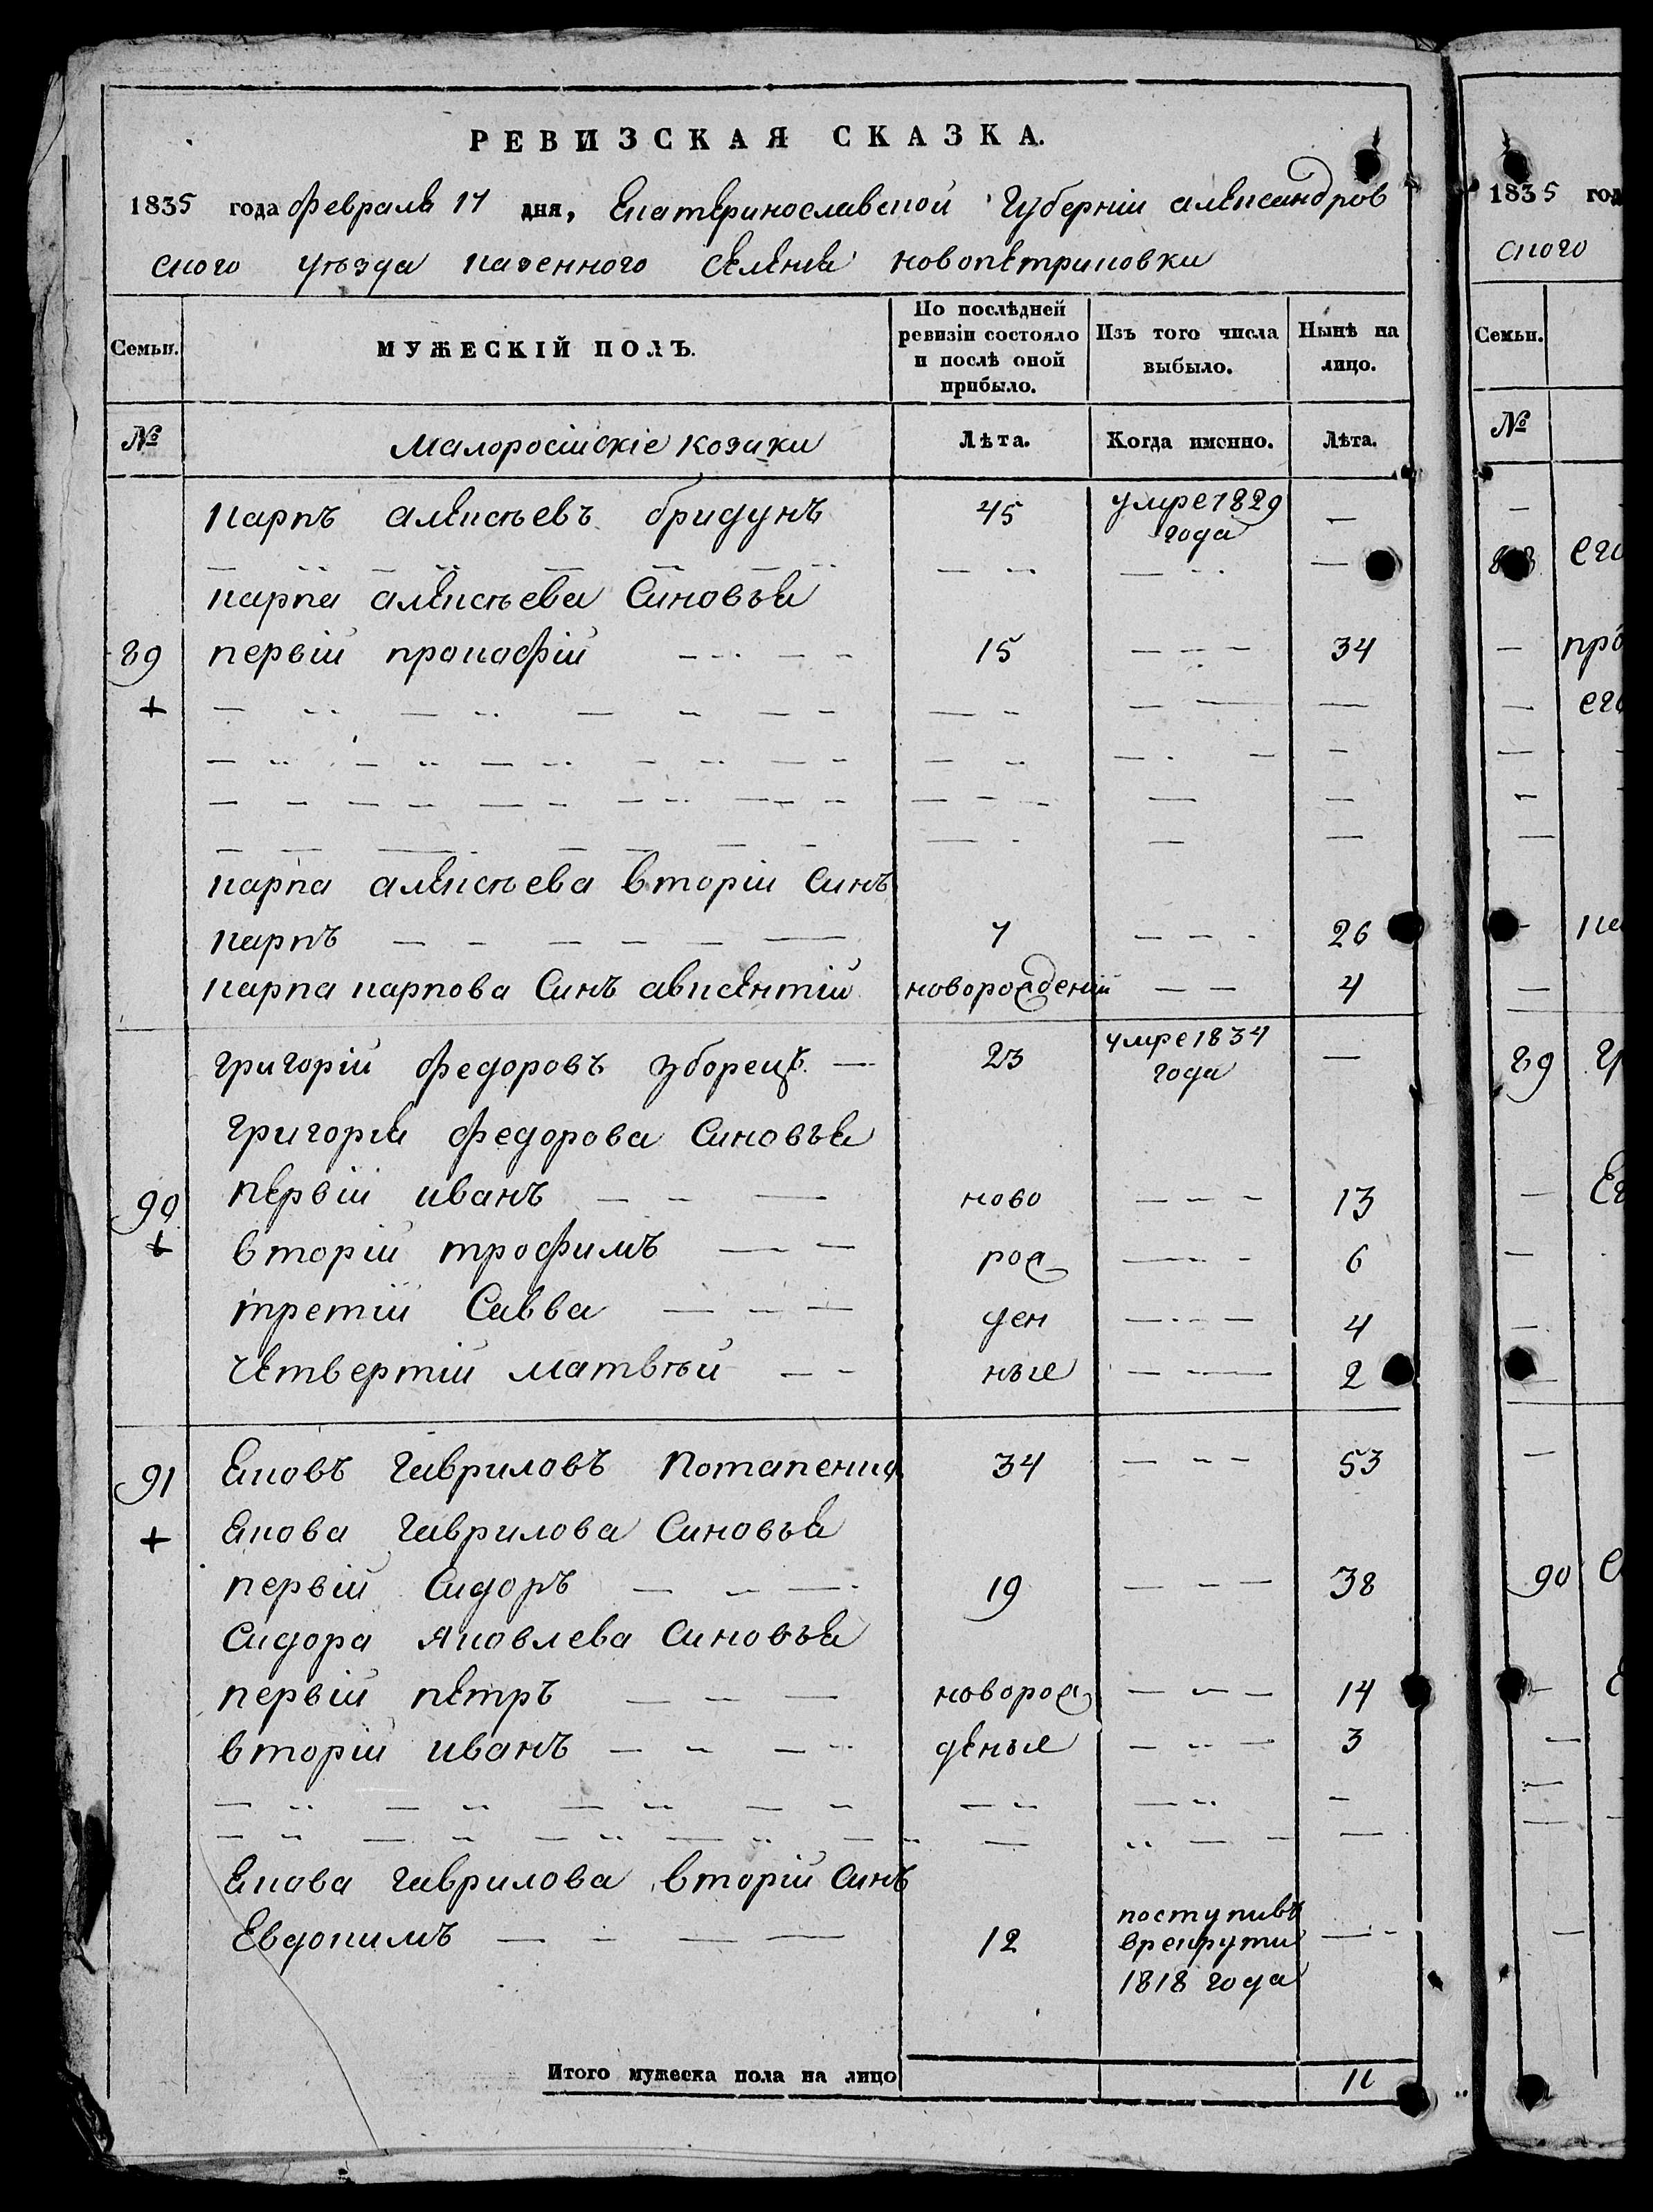 РЕВИЗСКАЯ СКАЗКА.
1835 года февраля 17 дня, Екатеринославской Губерніи александров
ского уѣзда казенного селенія новопетриковки
Семьи. МУЖЕСКІЙ ПОЛЪ. По послѣдней ревизіи состояло и послѣ оной прибыло. Изъ того числа выбыло. Нынѣ на лицо.
№ малоросійскіе козаки Лѣта. Когда именно. Лѣта.
карпъ алексѣевъ бридунъ 45 умре 1829 года —
карпа алексѣева синовья
89 первій прокофій 15 34
+
карпа алексѣева вторій синъ
карпъ 7 26
карпа карпова синъ авксентій новорожденій 4
григорій федоровъ уборецъ — 23 умре 1834 года —
григорія федорова синовья
90 первій иванъ ново 13
+ вторій трофимъ рож 6
третій Савва ден 4
четвертій матвѣй ные 2
91 Яковъ гавриловъ потапенко 34 53
+ Якова гаврилова синовья
первій Сидоръ 19 38
Сидора яковлева синовья
первій петръ новорож 14
вторій иванъ деные 3
Якова гаврилова вторій синъ
Евдокимъ 12 поступивъ врекрути 1818 года —
Итого мужеска пола на лицо 11
1835 год
ского
Семьи.
№
88 его
про
его
89
90